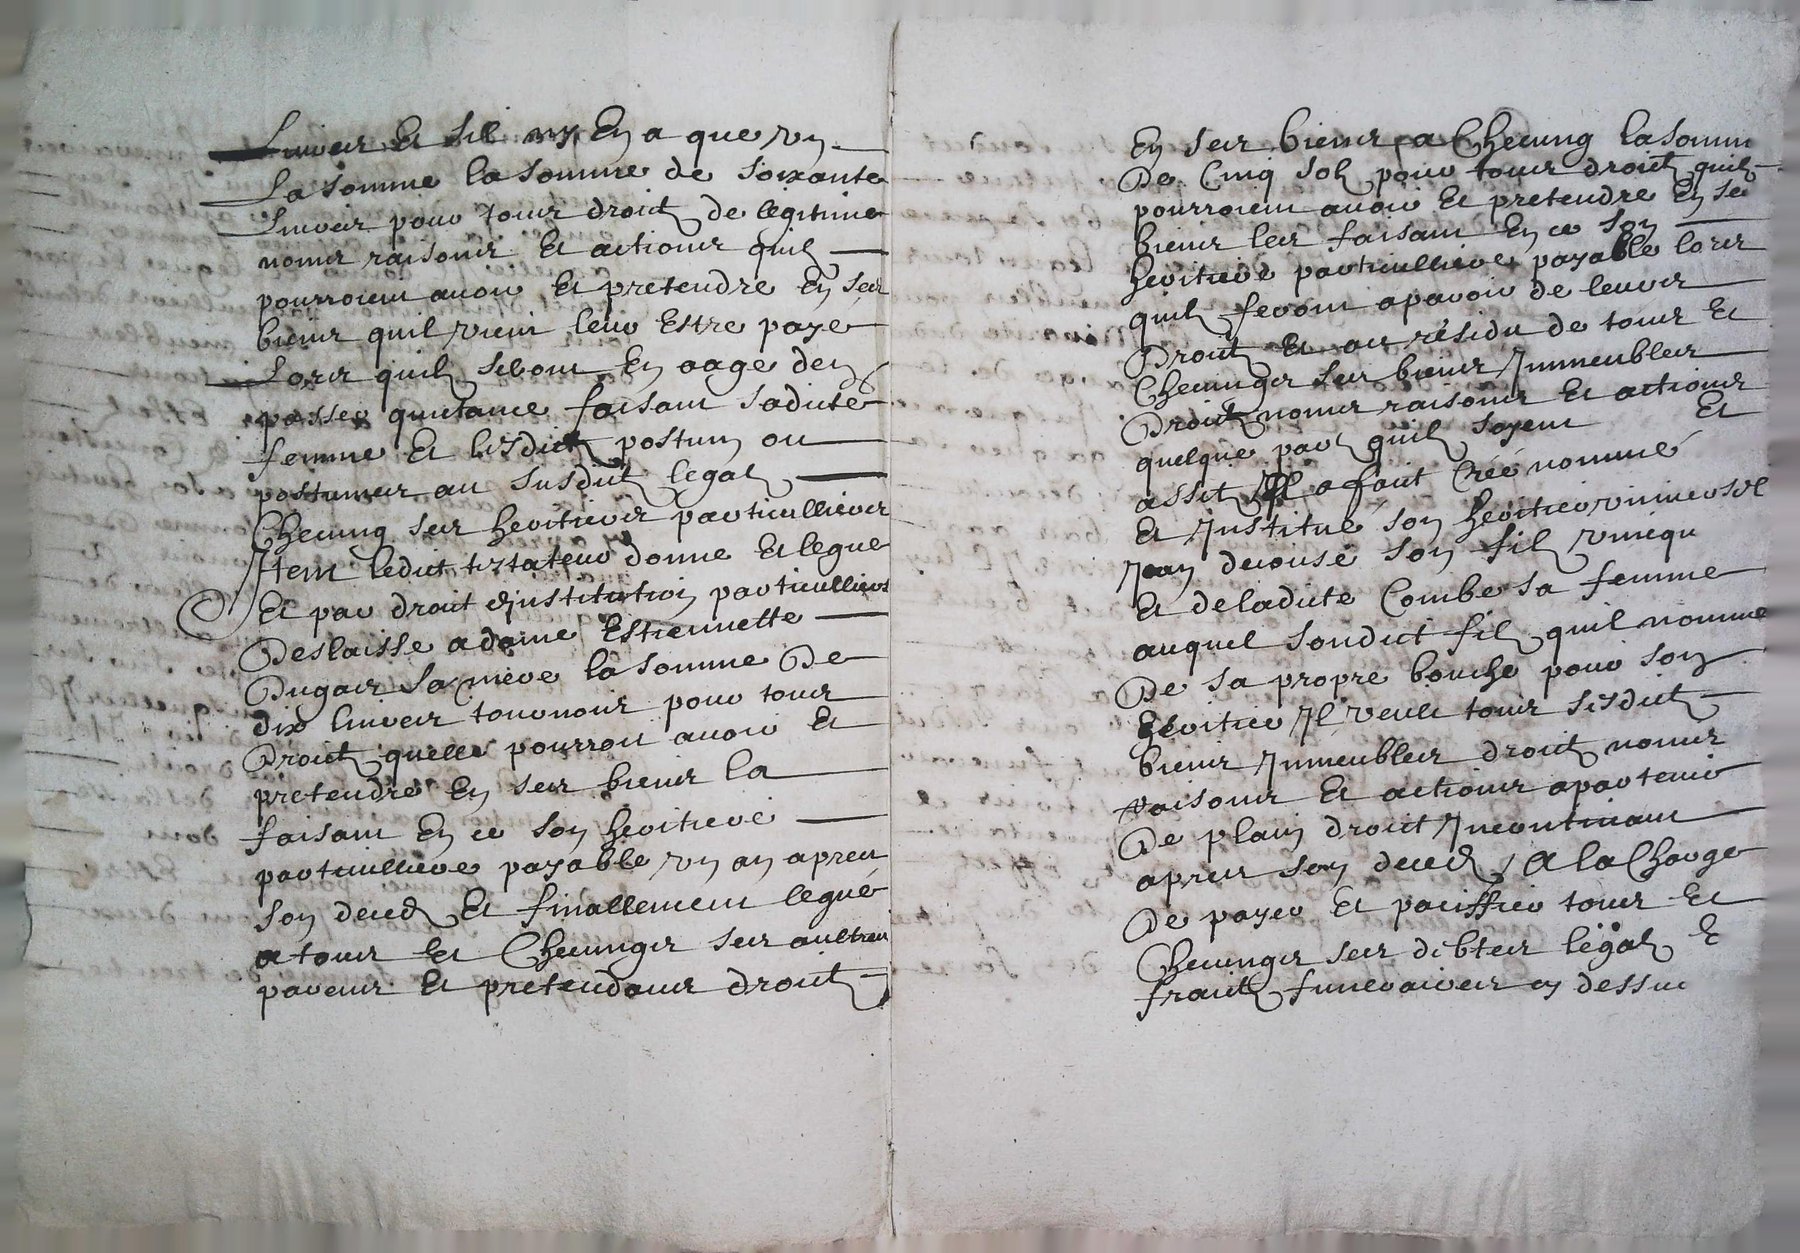 Livres Et sil ny En a que Un
La somme la somme de soixante
Livres pour tous droictz de legitime
noms raisons Et actions quilz
pourroient avoir Et pretendre En ses
biens quil vieut leur Estre paye
Lors quilz seront En aage den
passer quictance faisant sadicte
femme Et lesdictz postum ou
postumes au susdict legat
Checung ses heoritiers particulliers
Item ledict testateur donne Et legue
Et par droict dinstitution particulliere
Deslaisse a dame Estiennette
Dugas sa mere la somme De
dix livres tournois pour tous
Droictz quelle pourroit avoir Et
pretendre En ses biens la
faisant En ce son heoritiere
particulliere payable Un an apres
son decedz Et finallement legue
a tous Et Checungs ses aultres
parens Et pretendans droict
En ses biens a Checung la somm
De Cinq solz pour tous droictz quilz
pourroient avoir Et pretendre En ses
biens les faisant En ce son
heoritiere particulliere payable lors
quilz feront aparoir de leurs
Droictz Et au résidu de tous Et
Checungs ses biens Immeubles
Droictz noms raisons Et actions
quelque part quilz soyent Et
assit Il a faict Créé nommé
Et Institué son heoritier universel
Jean decousé son filz Unicqu
Et de ladicte Combe sa femme
auquel sondict filz quil nomme
De sa propre bouche pour son
heoritier Il veult tous sesdictz
biens Immeubles droictz noms
raisons Et actions apartenir
De plain droict Incontinant
apres son decedz A la Charge
De payer Et paciffier tous Et
Checungs ses debtes légatz Et
fraictz funeraires cy dessus